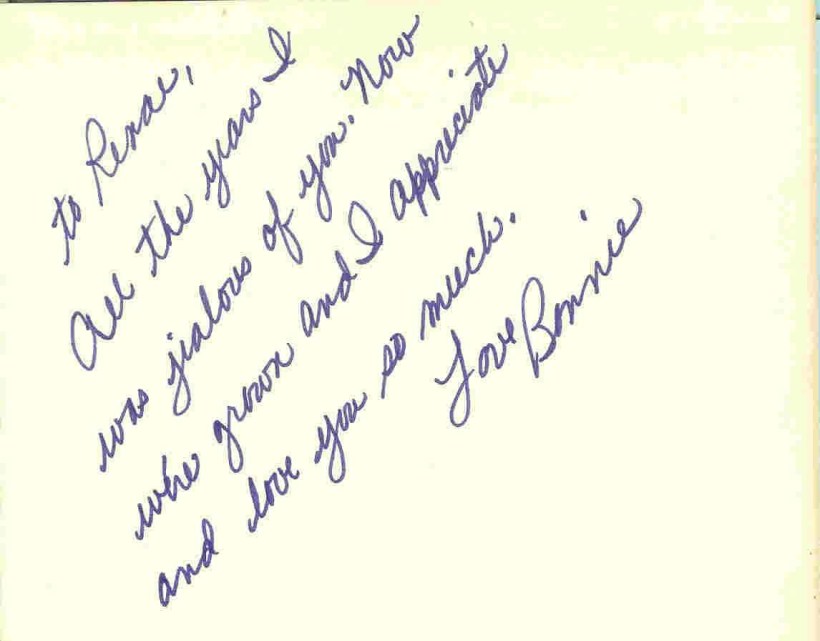 to Renae,
All the years I
was jealous of you. Now
we're grown and I appreciate
and love you so much.
Love Bonnie